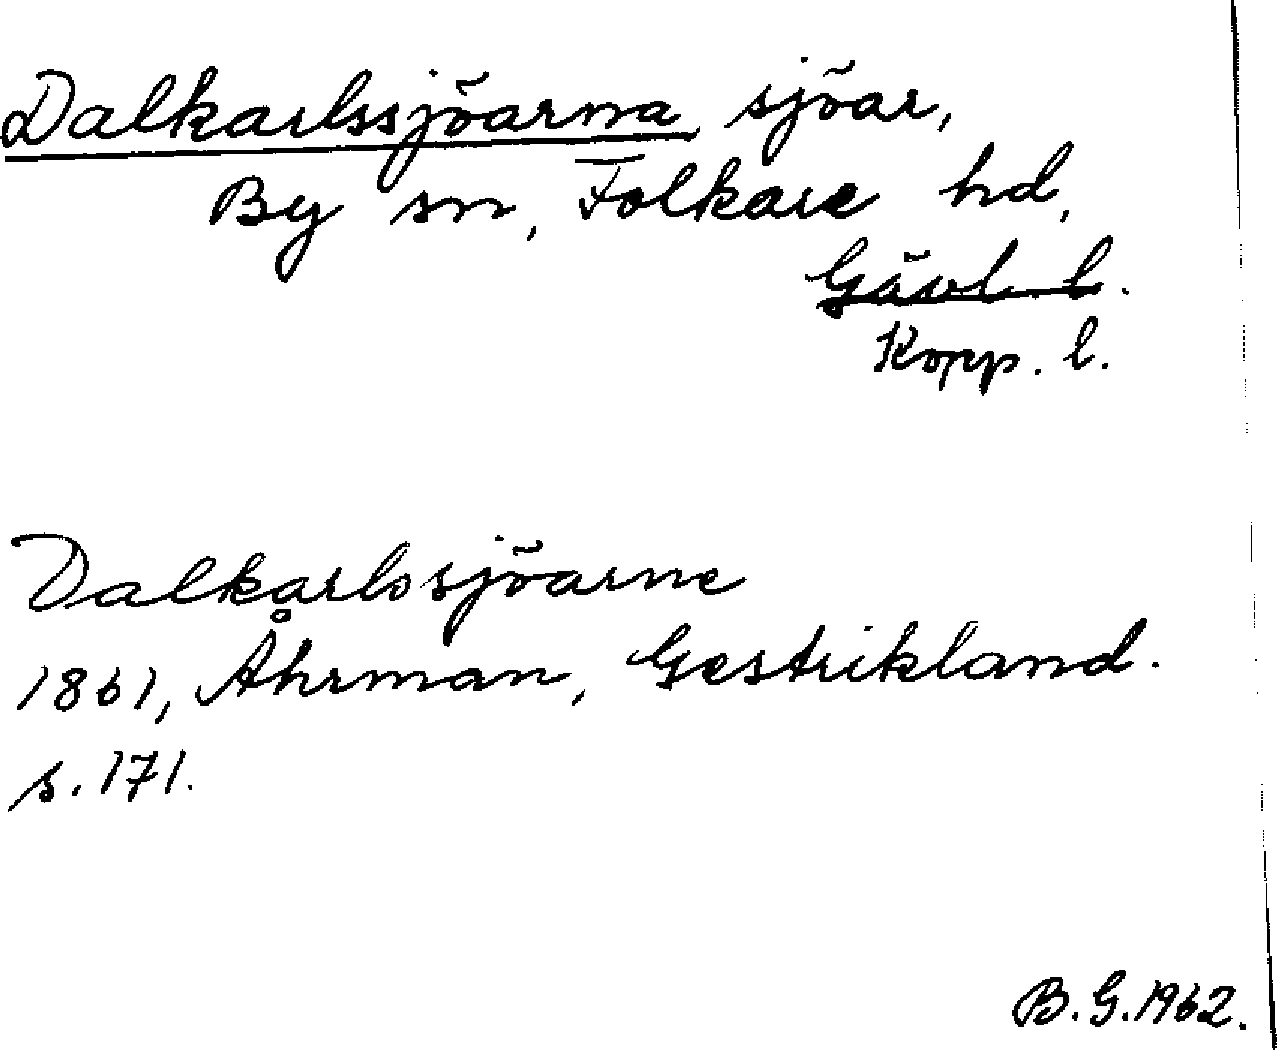 Dalkarlssjöarna, sjöar,
By sn, Folkare hd,
Gävl. l.
Kopp. l.
Dalkarlssjöarne
1861, Åhrman, Gestrikland.
s. 171.
B. G. 1962.